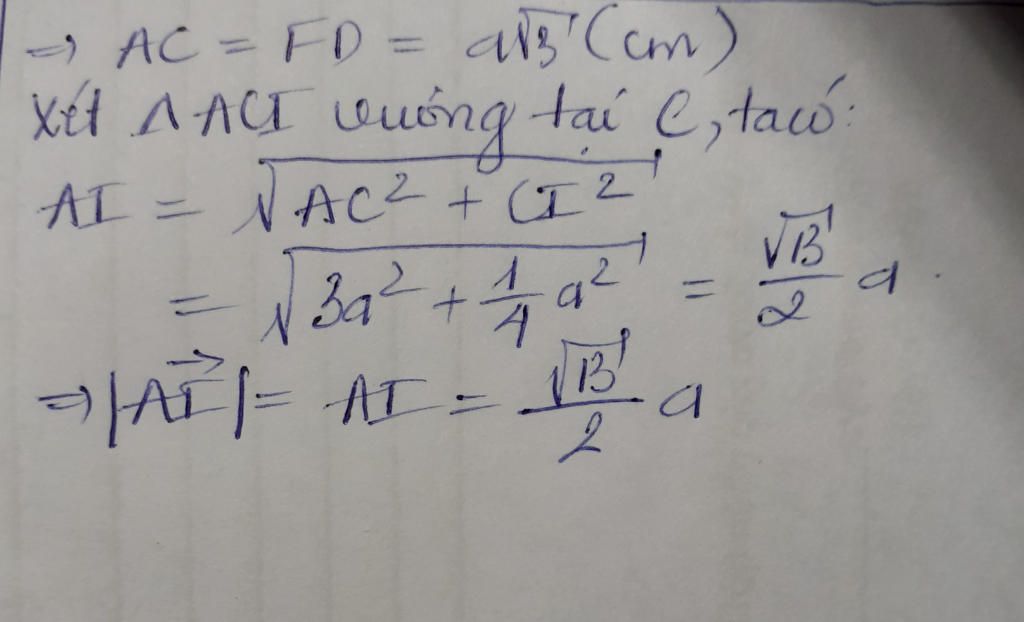 ⇒ AC = FD = a√3 (cm)
Xét Δ ACI vuông tại C, ta có:
AI = √(AC² + CI²)
= √(3a² + 1/4 a²) = √13/2 a.
⇒ |AI→| = AI = √13/2 a